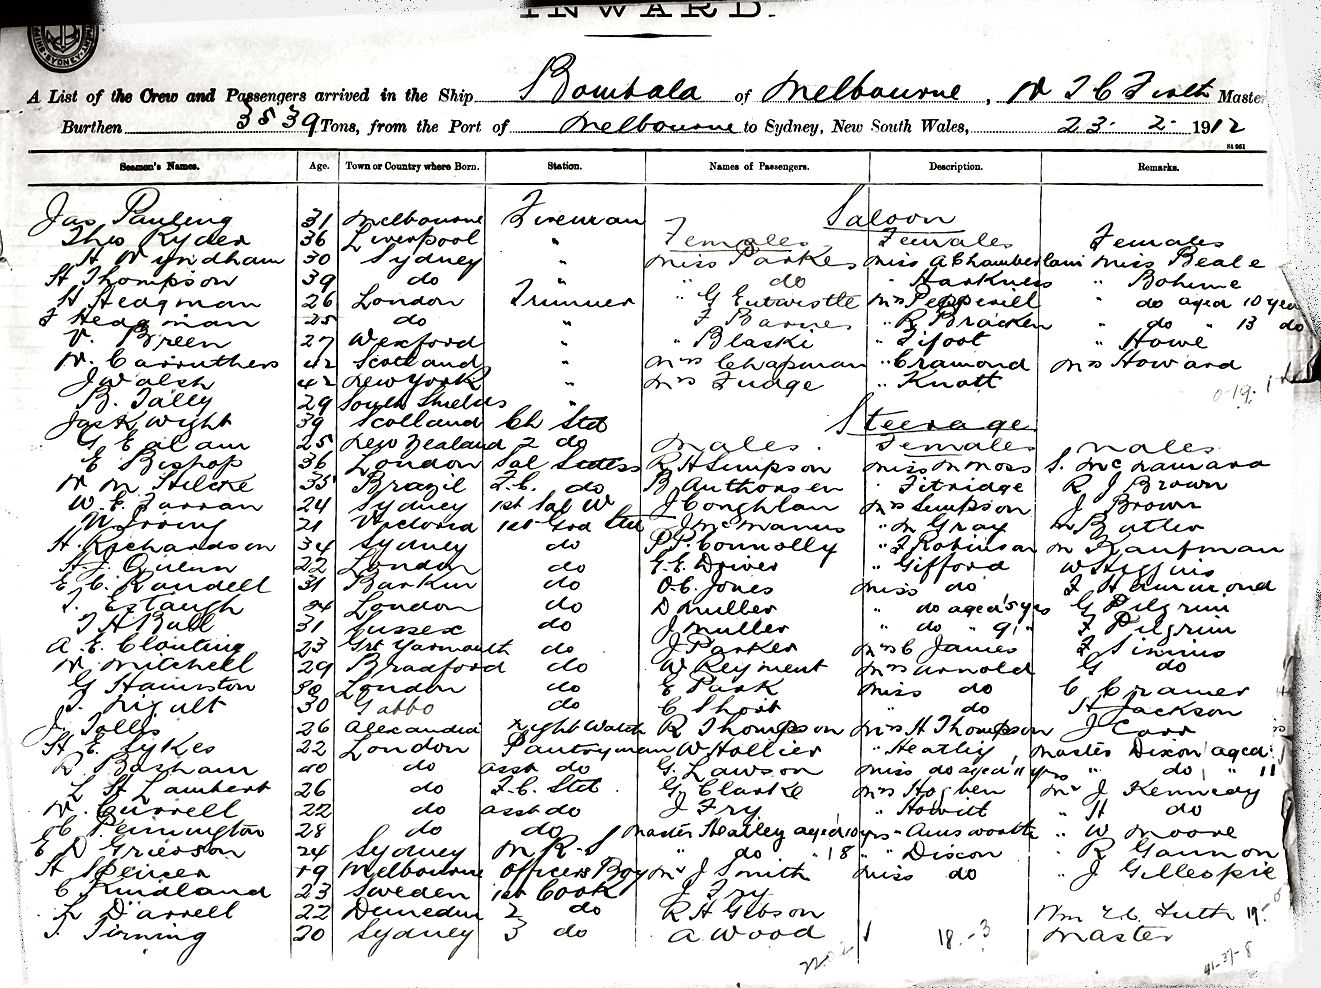 INWARD.
A List of the Crew and Passengers arrived in the Ship Bombala of Melbourne, Master
Burthen 3539 Tons, from the Port of Melbourne to Sydney, New South Wales, 23. 2. 1912
Seamen's Names. Age. Town or Country where Born. Station. Names of Passengers. Description. Remarks.
Jas Pauling 31 Melbourne Fireman Saloon
Thos Ryder 36 Liverpool " Females Females Females
H Wyndham 30 Sydney " Miss Parkes Miss A Chamberlain Miss Beale
H Thompson 39 do " " do " Harkness " Boheme
H Hedgman 26 London Trimmer " G Entwistle Mrs Pepperell " do aged 10 years
F Hedgman 25 do " " F Barnes " R Bracken " do " 13 do
Breen 27 Wexford " " Blaski " Fifoot " Howe
W. Carruthers 42 Scotland " Mrs Chapman " Cramond Mrs Howard
J Walsh 42 New York " Mrs Fudge " Knott
B. Talley 29 South Shields "
Jas K Wight 39 Scotland Ch Std Steerage
G Ealam 25 New Zealand 2 do Males. Females Males
E Bishop 36 London Sal Stdess R H Simpson Miss M Moss S. McNamara
35 Brazil F.C. do B Authorsen " Titridge R J Brown
W. E. Farran 24 Sydney 1st Sal W J Coughlan Mrs Simpson J Brown
W Irving 21 Victoria 1st Grd Std J McManus " M Gray M Butler
H. Richardson 34 Sydney do P P Connolly " F Robinson M Kaufman
H. J. Quinn 22 London do G. E. Driver " Gifford W Higgins
E. C. Randell 31 Barkin do O. C. Jones Miss do F Hammond
T. Estaugh 34 London do D Muller " do aged 5 yrs G Pilgrim
T H Ball 31 Sussex do J Muller " do " 9 " F Pilgrim
A. E. Clouting 23 Grt Yarmouth do J Parker Mrs C James F Simms
W Mitchell 29 Bradford do W Reyment Mrs Arnold G do
G Hamston 30 London do E Park Miss do C Cramer
30 Gabbo do C Short " do H Jackson
J. Tollis 26 Alexandria Night Watch R Thompson Mrs H Thompson J Carr
H. E. Sykes 22 London Pantryman W Hollier " Heatley Master Dixon aged
R. Basham 40 do asst do G. Lawson Miss do aged 11 yrs " do " 11
L H Lambert 26 do F.C. Std. G. Clarke Mrs Hogben Mr J Kennedy
W. Currell 22 do asst do J Fry " Howitt " H do
C. Pennington 28 do do Master Heatley aged 10 yrs " Ainsworth " W Moore
E D Grierson 24 Sydney M R S " do " 18 " Dixon " R Gannon
H Spencer 19 Melbourne Officers Boy Mr J Smith Miss do " J Gillespie
C Kindland 23 Sweden 1st Cook J Fry
L Darrell 22 Dunedin 2 do R H Gibson
T. Tirning 20 Sydney 3 do A Wood 18.-3 Master
41-37-8